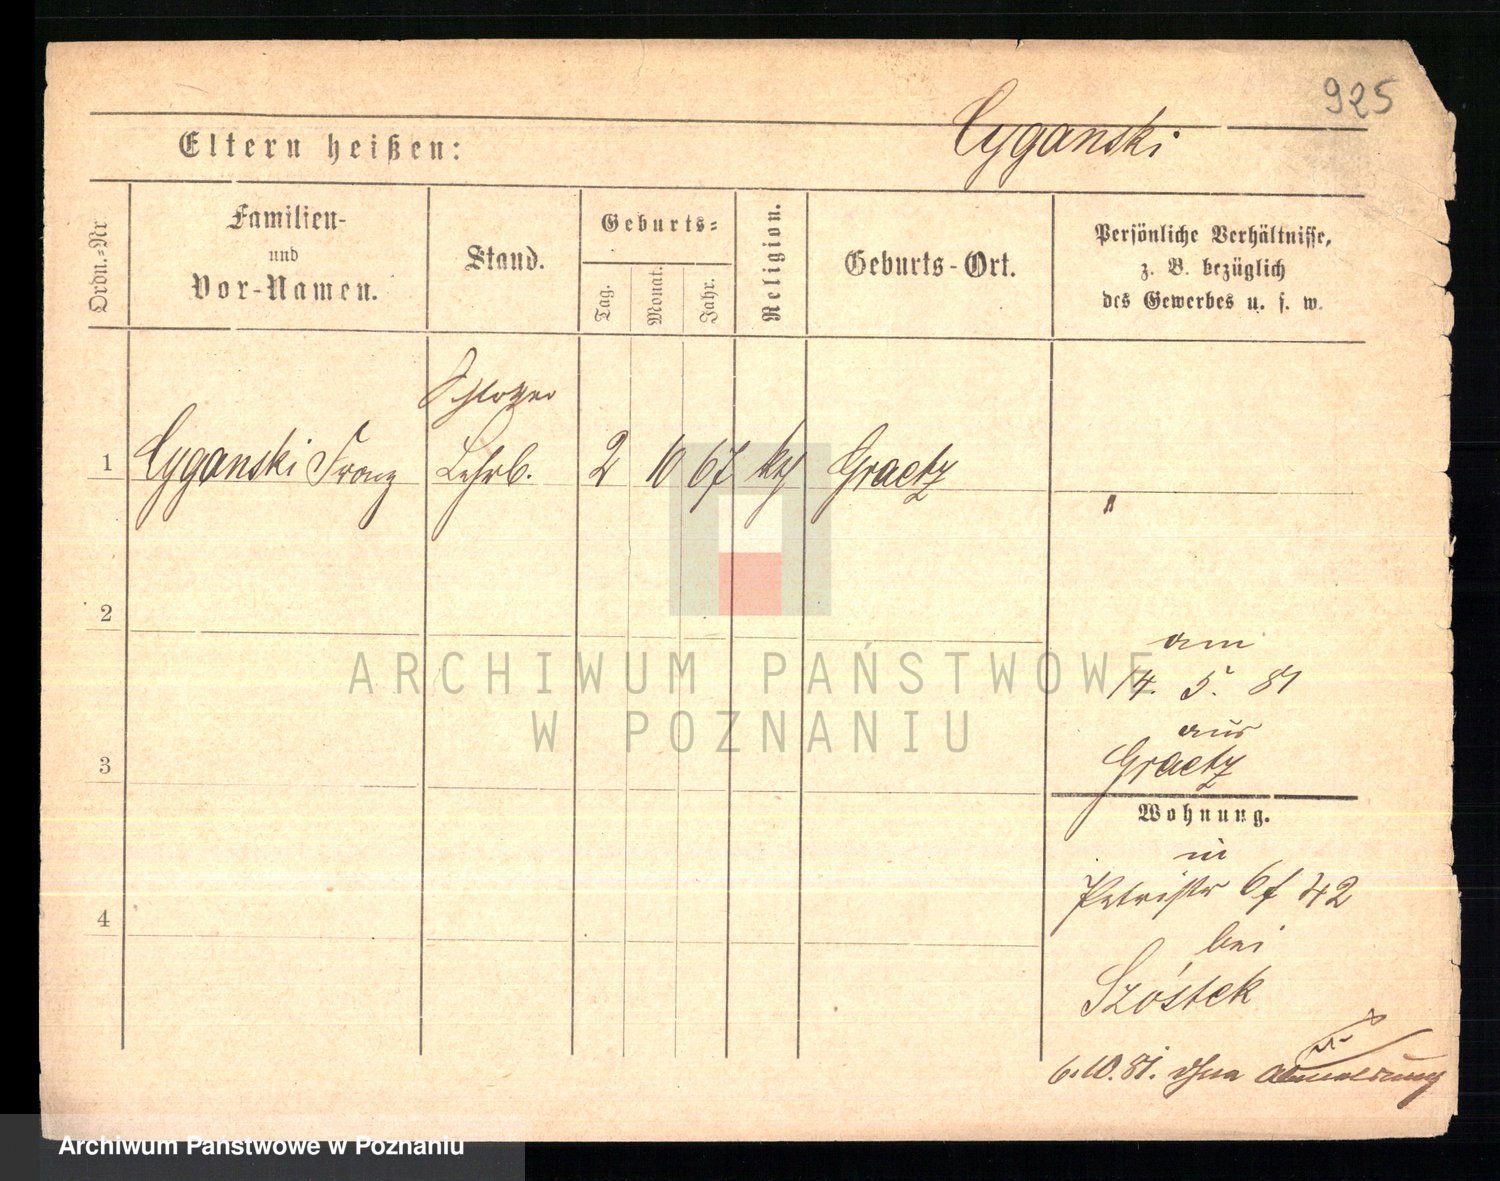 925
Cyganski
Eltern heißen:
Ordn.-Nr
Familien-
und
Vor-Namen.
Stand.
Geburts-
Tag.
Monat.
Jahr.
Religion.
Geburts-Ort.
Persönliche Verhältnisse,
z. B. bezüglich
des Gewerbes u. s. w.
Schlosser
1 Cyganski Franz Lehrb. 2 10 67 kth Graetz
"
2
am
14. 5. 81
aus
3 Graetz
Wohnung.
in
4 Petristr 6 f 42
bei
Szóstek
6.10.81. ohne Abmeldung
ARCHIWUM PAŃSTWOWE
W POZNANIU
Archiwum Państwowe w Poznaniu